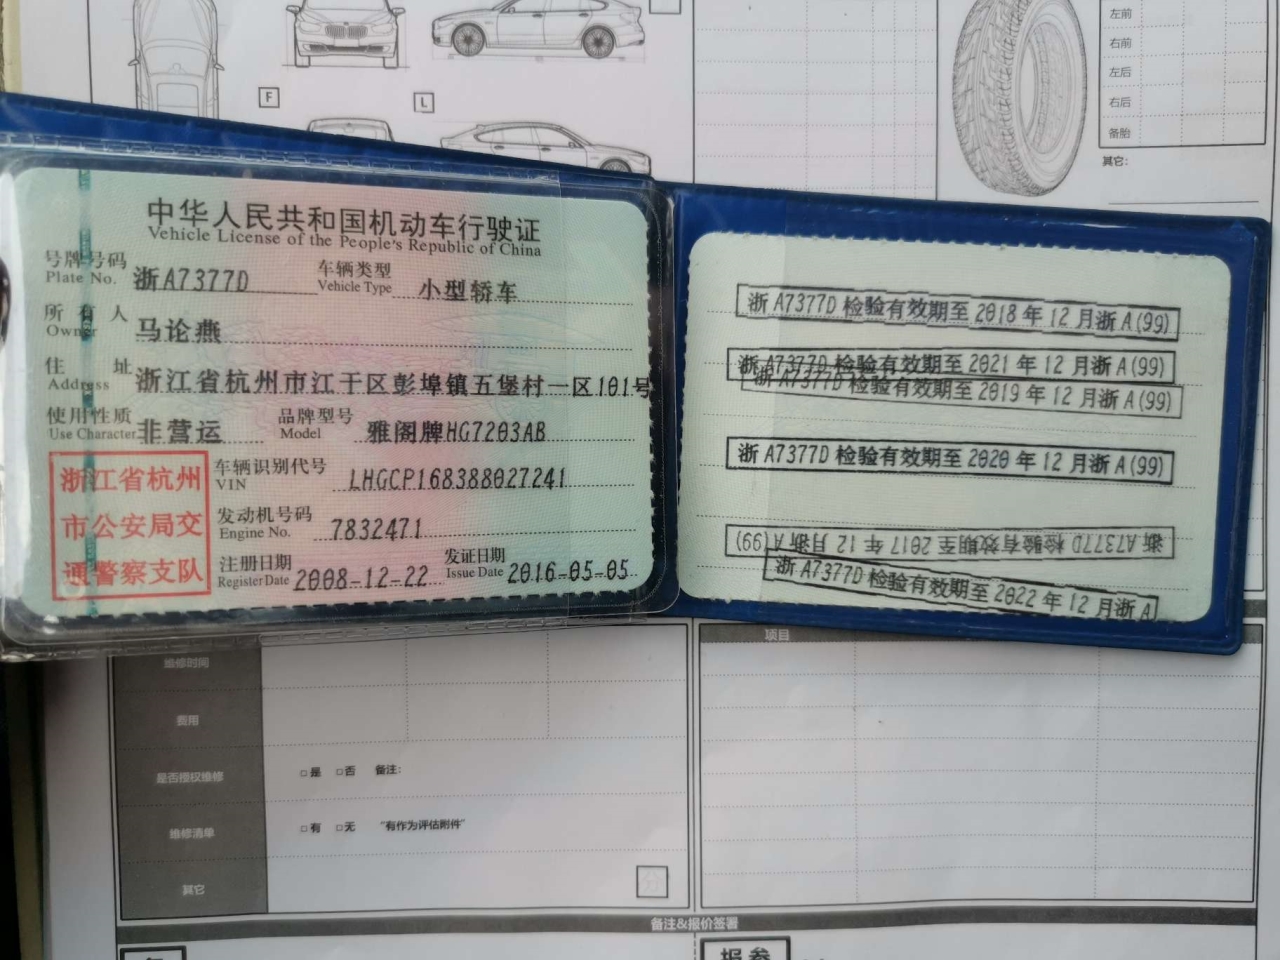 F
L
左前
右前
左后
右后
备胎
其它:
中华人民共和国机动车行驶证
Vehicle License of the People's Republic of China
号牌号码 浙A7377D 车辆类型 小型轿车
Plate No. Vehicle Type
所有人 马论燕
Owner
住址 浙江省杭州市江干区彭埠镇五堡村一区101号
Address
使用性质 非营运 品牌型号 雅阁牌HG7203AB
Use Character Model
浙江省杭州
市公安局交
通警察支队
车辆识别代号 LHGCP168388027241
VIN
发动机号码 7832471
Engine No.
注册日期 2008-12-22 发证日期 2016-05-05
Register Date Issue Date
浙A7377D检验有效期至2018年12月浙A(99)
浙A7377D检验有效期至2021年12月浙A(99)
浙A7377D检验有效期至2019年12月浙A(99)
浙A7377D检验有效期至2020年12月浙A(99)
浙A7377D检验有效期至2017年12月浙A(99)
浙A7377D检验有效期至2022年12月浙A
项目
维修时间
费用
是否授权维修 □是 □否 备注:
维修清单 □有 □无 "有作为评估附件"
其它
备注&报价签署